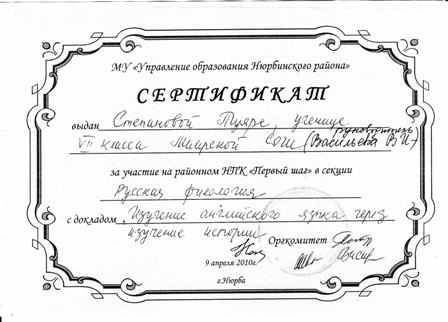 МУ «Управление образования Нюрбинского района»
СЕРТИФИКАТ
выдан Степановой Туяре, ученице
руководитель
VII класса Маарской СОШ (Васильева В И)
за участие на районном НПК «Первый шаг» в секции
Русская филология
с докладом „Изучение английского языка через
изучение истории
Оргкомитет
9 апреля 2010г.
г.Нюрба